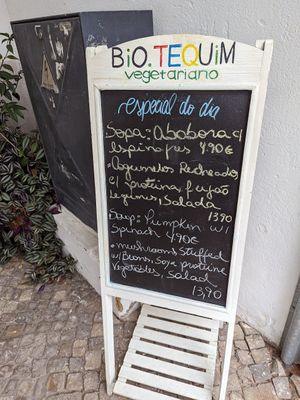 BiO.TEQUiM
vegetariano
especial do dia
Sopa: Abobora c/
espinafres 4,90€
•Cogumelos Recheados
c/ proteina, feijão
legumes, Salada
13,90
Soup: Pumpkin w/
Spinach 4,90€
•mushrooms Stuffed
w/ Beans, Soya proteine
Vegetables, Salad
13,90